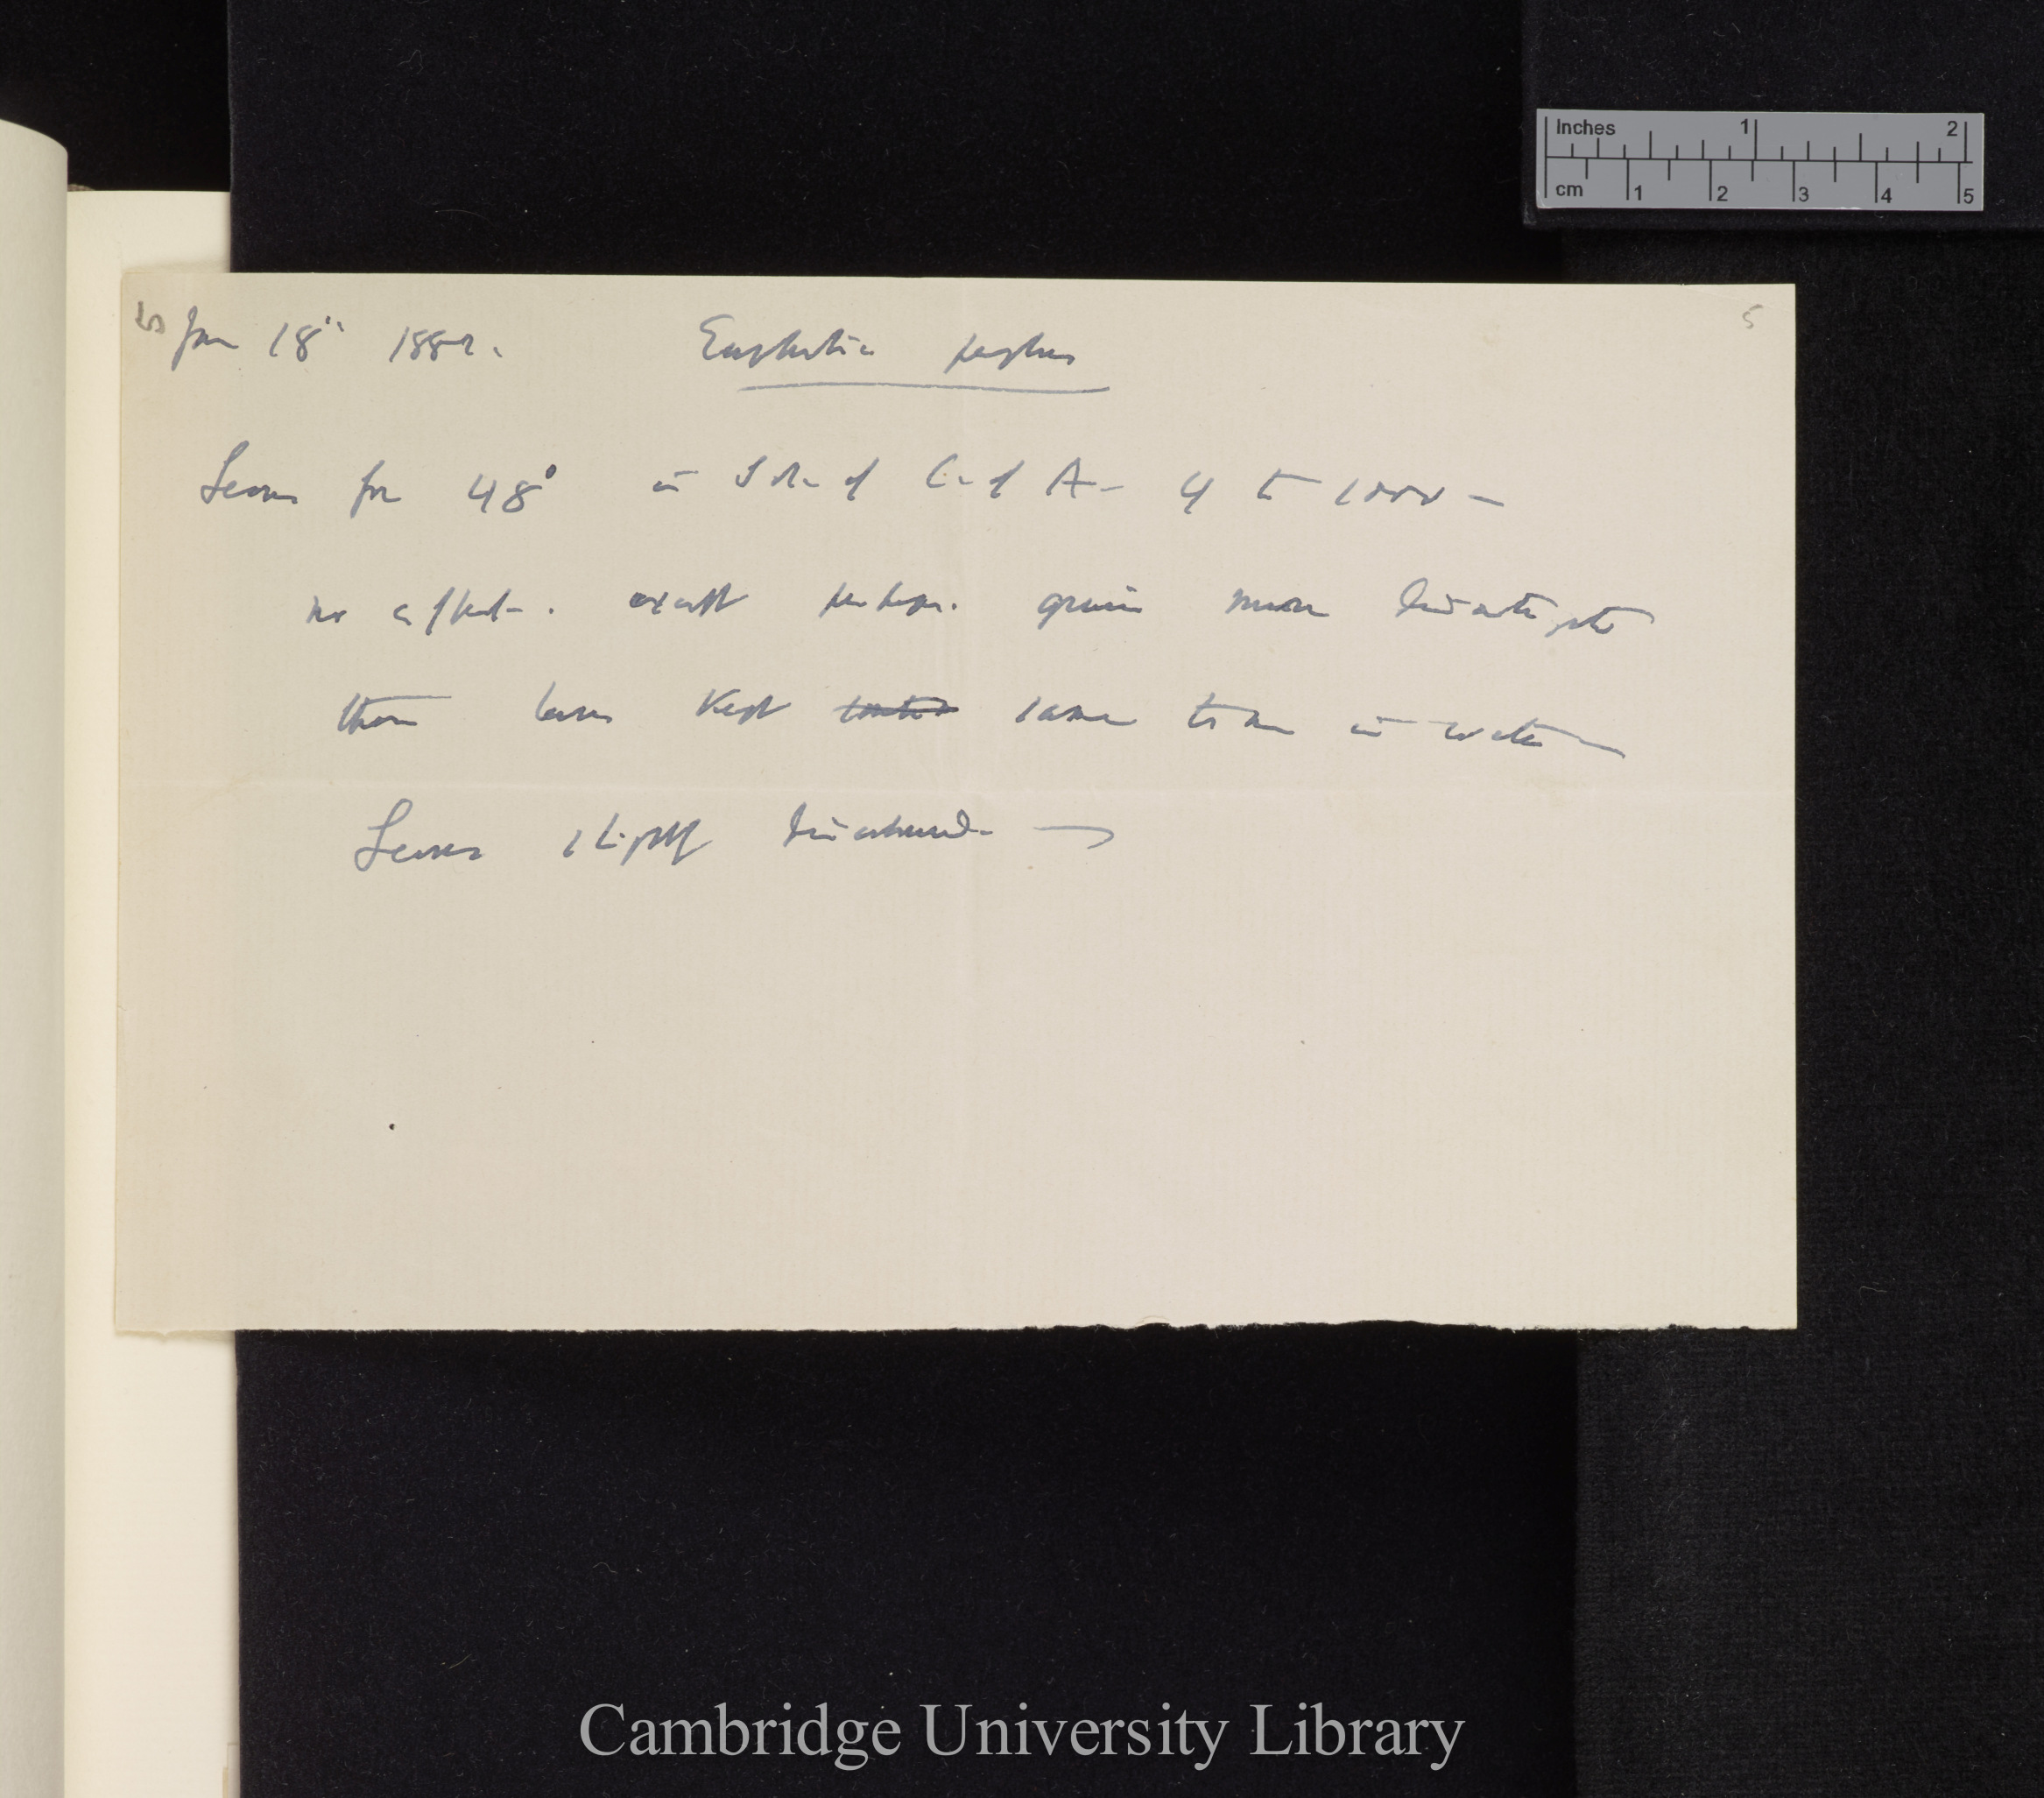 Inches 1 2
cm 1 2 3 4 5
5
Jan 18" 1882. Euphorbia peplus
Leaves for 48° in Sol. of C. of A- 4 to 1000 —
no effect. except perhaps. grains more
than leaves kept same time in water
Leaves slightly —
Cambridge University Library